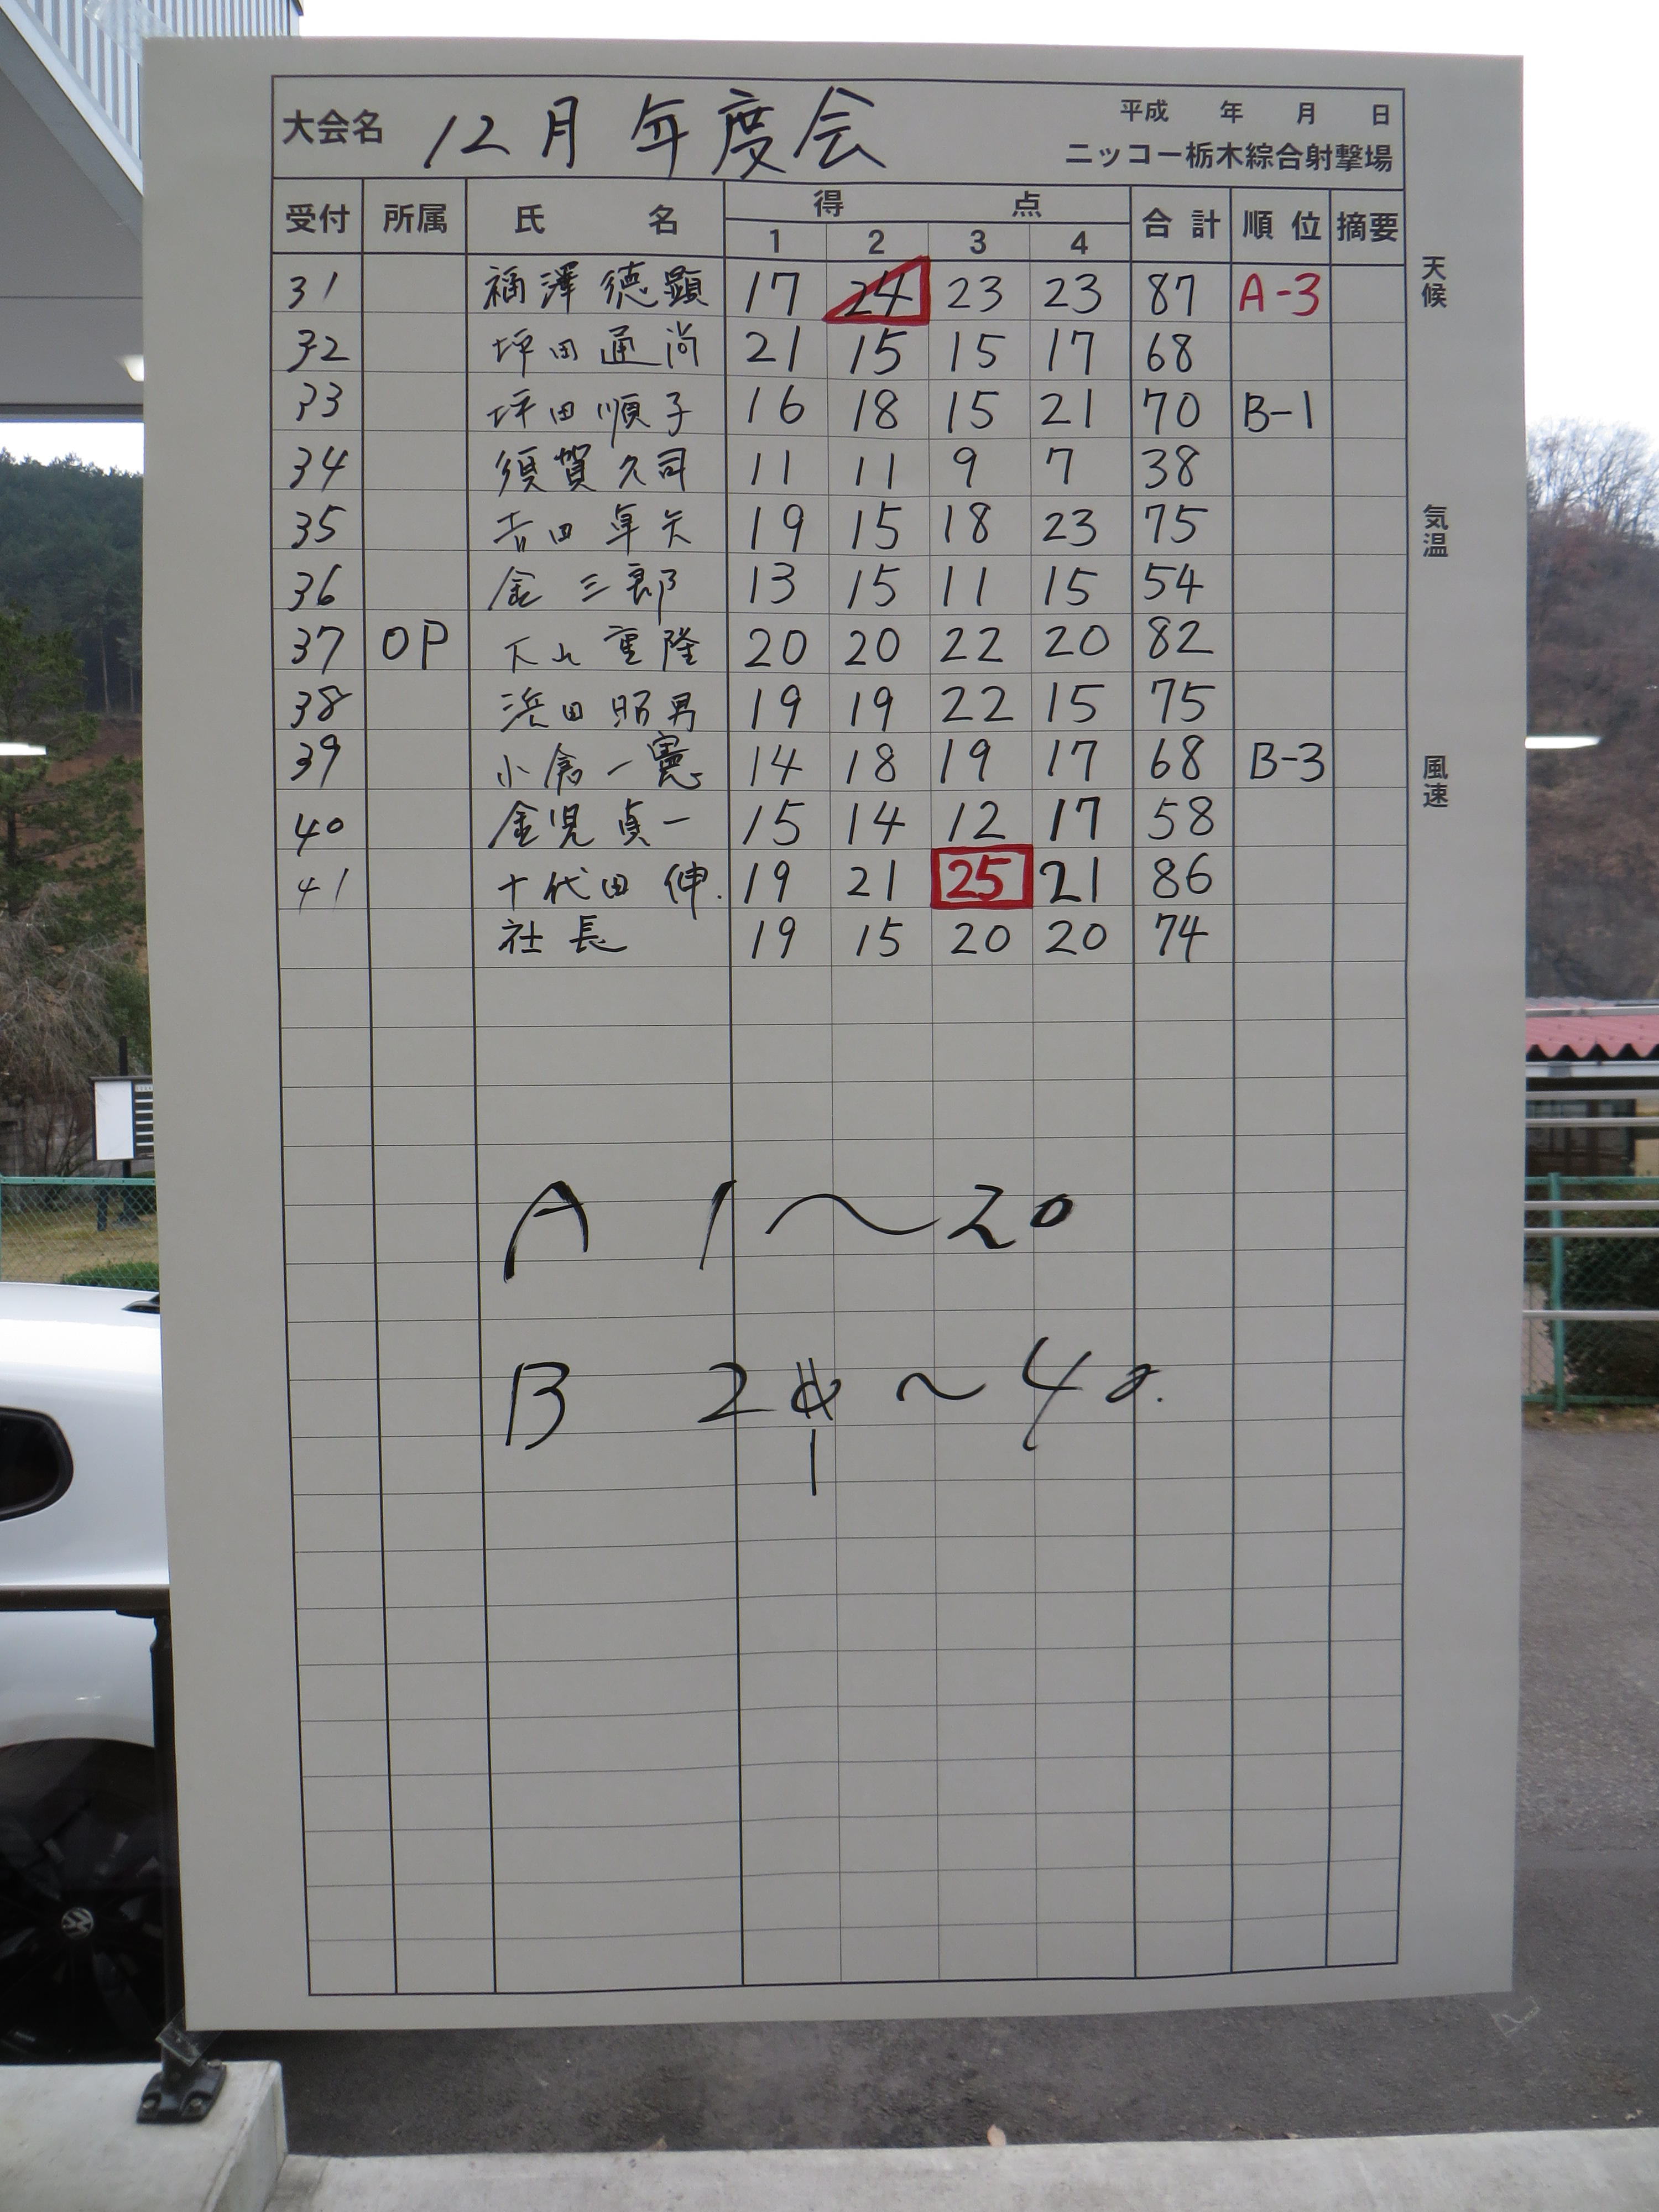 大会名 12月年度会 平成 年 月 日
ニッコー栃木綜合射撃場
受付 所属 氏 名 得 点 合計 順位 摘要
1 2 3 4
31 福澤徳顕 17 24 23 23 87 A-3
32 坪田通尚 21 15 15 17 68
33 坪田順子 16 18 15 21 70 B-1
34 須賀久司 11 11 9 7 38
35 吉田卓矢 19 15 18 23 75
36 金三郎 13 15 11 15 54
37 OP 大山重隆 20 20 22 20 82
38 浜田昭男 19 19 22 15 75
39 小倉一憲 14 18 19 17 68 B-3
40 金児貞一 15 14 12 17 58
41 十代田伸. 19 21 25 21 86
社長 19 15 20 20 74
A 1〜20
B 2 〜40.
1
天候
気温
風速